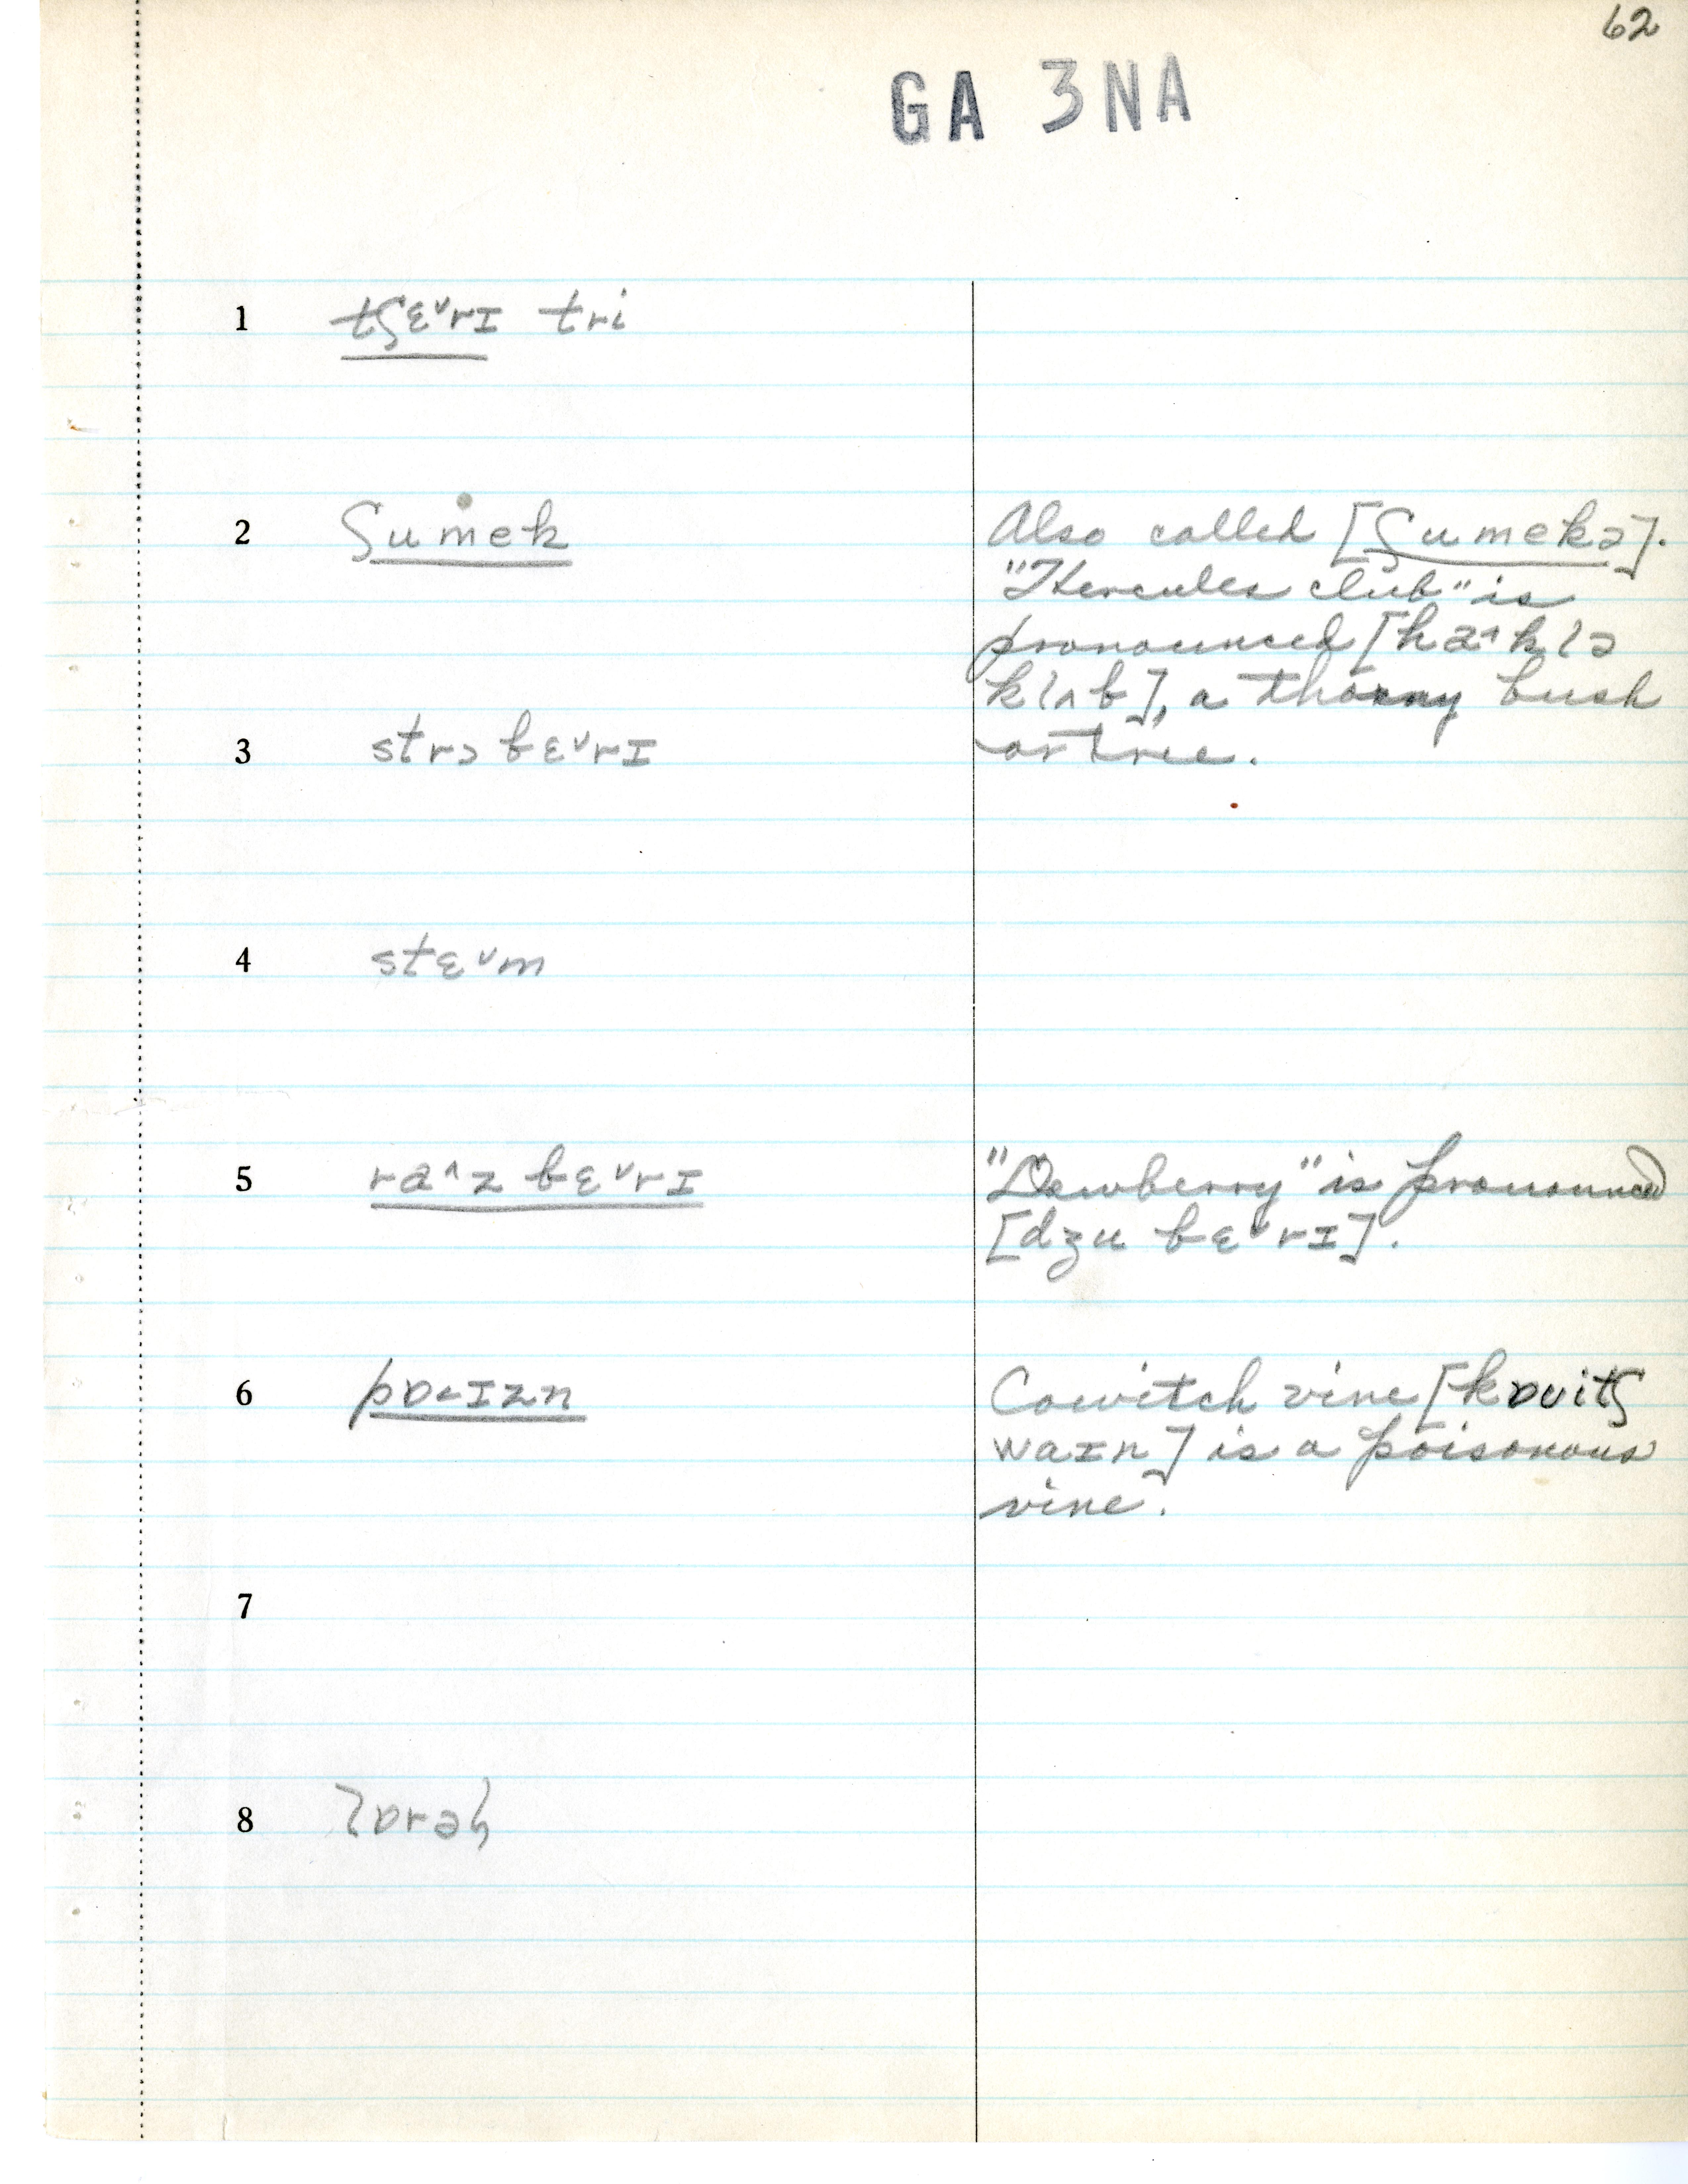 62
GA 3NA
1 tʃɛ˅rɪ tri
2 ʃumek
Also called [ʃumekə].
"Hercules club" is
pronounced [ha˄klə
klʌb], a thorny bush
or tree.
3 strɔ bɛ˅rɪ
4 stɛ˅m
5 ra˄z bɛ˅rɪ
"Dewberry" is pronounced
[dʒu bɛ˅rɪ].
6 pɒ˂ɪzn
Cowitch vine [kɒuitʃ
waɪn] is a poisonous
vine.
7
8